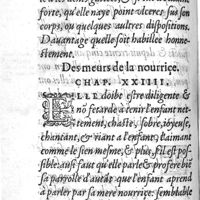 forte, qu'elle n'aye point vlceres sus son
corps, ou quelques autres dispositions.
D'auantage quelle soit habillee honne-
stement.
Des meurs de la nourrice.
CHAP. XXIIII.
ELLE doibt estre diligente &
no ſetarde à tenir l'enfant net-
tement, chaste, sobre, ioyeuse,
chantant, & riant a l'enfant, l'aimant
comme le sien mesme, & plus, s'il est possi-
ble: aussi faut qu'elle parle & profere bié
sa parrolle d'autāt que l'enfant aprend
à parler par sa mere nourrice: semblable